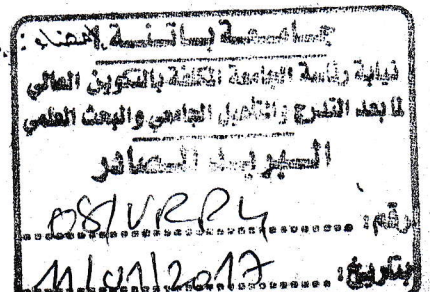 جامعة باتنة الاعضاء :
نيابة رئاسة الجامعة المكلفة بالتكوين العالي
لما بعد التدرج والتأهيل الجامعي والبحث العلمي
البريد الصادر
رقم : 08/VRP4
بتاريخ : 11/01/2017